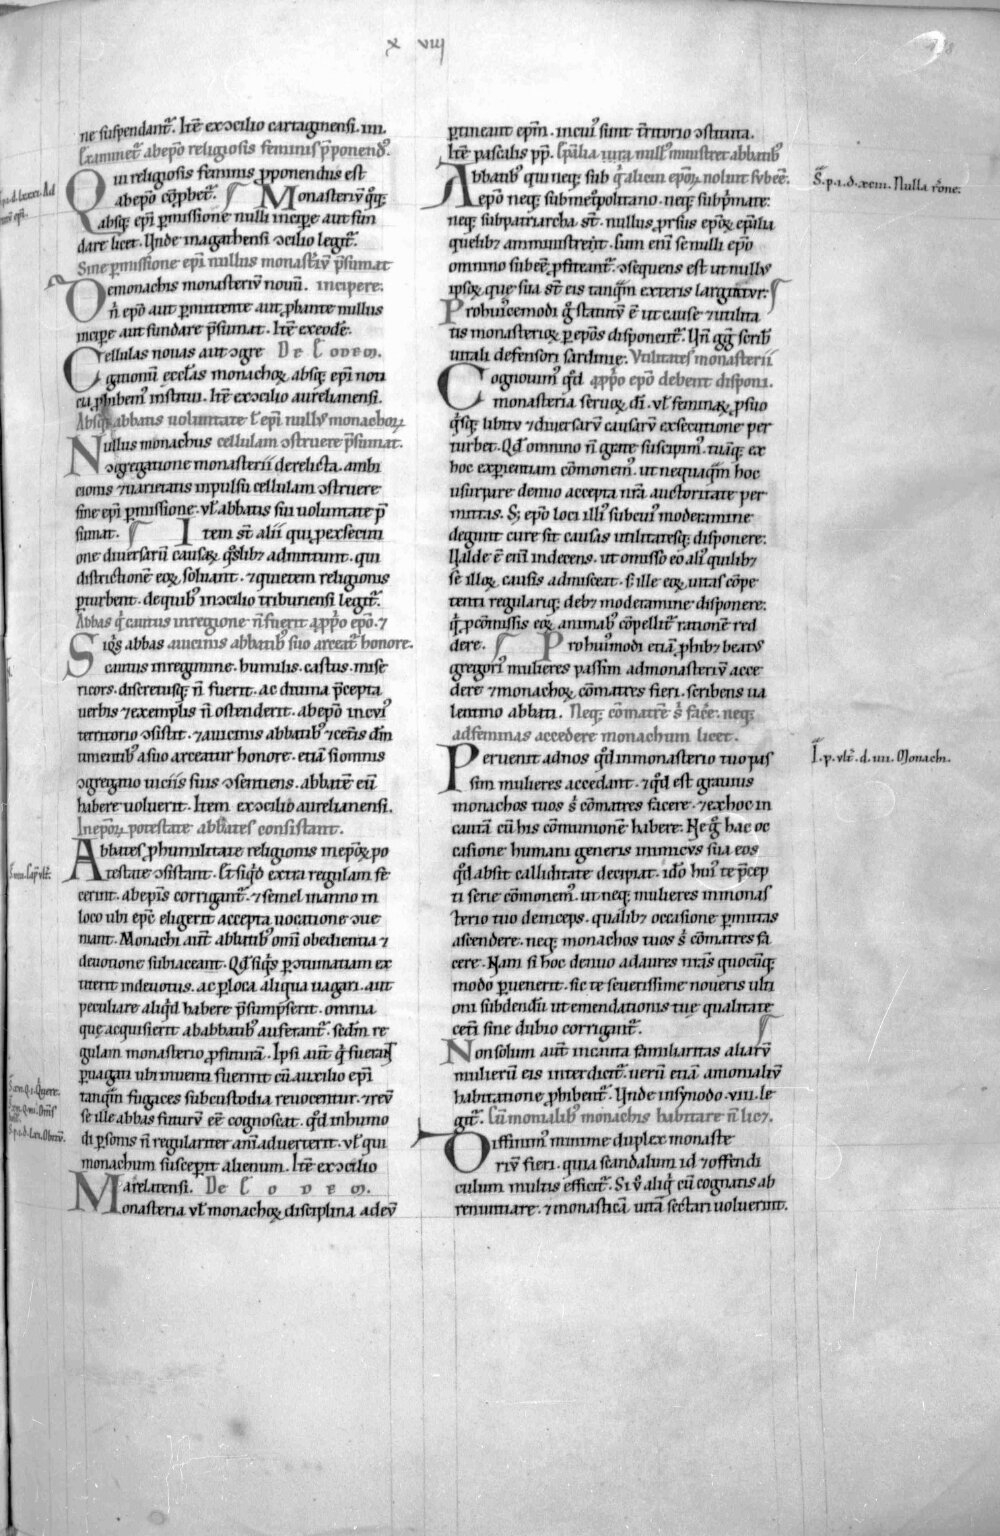 x viij
ne suspendant᷑. Ite᷑ ex ↄcilio cartaginensi. iiii.
Examinet᷑ ab epo religiosis feminis p̄ponend᷒.
Qui religiosis feminis p̄ponendus est
ab epo cōp̱bet᷑. Monasteriū q̊q;
absq; ep̄i p̱missione nulli incipe aut fun
dare licet. Unde in agathensi ↄcilio legit᷑.
Sine p̱missione ep̄i nullus monast᷑iū p̄sumat
De monachis monasteriū nouū. incipere.
n̄ epō aut p̱mittente aut ꝓbante nullus
incipe aut fundare p̄sumat. Ite᷑ ex eodē.
Cellulas nouas aut ↄgre De Eodem.
gatiunculā
cū ꝓhibem᷒ institui. Ite᷑ ex ↄcilio aurelianensi.
Absq; abbatis uoluntate ł ep̄i nullus monachoꝝ
Nullus monachus cellulam ↄstruere p̄sumat.
ↄgregatione monasterii derelicta. ambi
cionis ⁊ uarietatis inpulsu cellulam ↄstruere
sine ep̄i p̱missione. vł abbatis sui uoluntate p̄
sumat. Item st̄ alii qui p̱ exsecuti
one diuersarū causaꝝ q̊slib; admittunt. qui
districtionē eoꝝ soluant. ⁊ quietem religionis
p̱turbent. de quib᷒ in ↄcilio triburiensi legit᷑.
Abbas q̇ cautus in regione n̄ fuerit a ꝓpo epō. ⁊
Siq̇s abbas a uicinis abbatib᷒ suo arceat᷑ honore.
cautus in regimine. humilis. castus. mise
ricors. discretusq; n̄ fuerit. ac diuina p̄cepta
uerbis ⁊ exemplis n̄ ostenderit. ab epō in cui᷒
territorio ↄsistit. ⁊ a uicinis abbatib᷒ ⁊ cet᷑is dm̄
timentib᷒ a suo arceatur honore. etiā si omnis
ↄgregatio uiciis suis ↄsentiens. abbatē eū
habere voluerit. Item ex ↄcilio aurelianensi.
In ep̄oꝝ potestate abbates consistant.
Abbates ꝓ humilitate religionis in ep̄oꝝ po
testate ↄsistant. Et siq̇d extra regulam fe
cerint. ab ep̄is corrigant᷑. ⁊ semel in anno in
loco ubi ep̄c eligerit accepta uocatione ↄue
niant. Monachi aut̄ abbatib᷒ omī obedientia ⁊
deuotione subiaceant. Qd̄ siq̇s p̱ ↄtumatiam ex
titerit indeuotus. ac p̱ loca aliqua uagari. aut
peculiare aliq̇d habere p̄sumpserit. omnia
que acquisierit ab abbatib᷒ auferant᷑. sedm̄ re
gulam monasterio ꝓfuturā. Ipsi aut̄ q̇ fuerant
p̱uagati ubi inuenti fuerint cū auxilio ep̄i
tanq̄m fugaces sub custodia reuocentur. ⁊ reū
se ille abbas futurū eē cognoscat. q̇d in huiuo
di p̱sonis n̄ regulariter anīaduerterit. vł qui
monachum susceperit alienum. Ite᷑ ex ↄcilio
arelatensi. De Eodem.
Monasteria vł monachoꝝ disciplina ad eū
p̱tineant ep̄m. in cui᷒ sunt t᷑ritorio ↄstituta.
Ite᷑ pascalis pp̄. Ep̄alia iura null᷒ ministret abbatib᷒
Abbatib᷒ qui neq; sub q̇ alicui᷒ ep̄oꝝ nolunt subeē.
epō neq; sub met᷑politano. neq; sub p̱mate.
neq; sub patriarcha st̄. nullus ꝓrsus ep̄oꝝ ep̄alia
quelib; amministrent. Cum eni᷑ se nulli epō
omnino subeē ꝓfiteant᷑. ↄsequens est ut nullus
ipsoꝝ que sua st̄ eis tanq̄m exteris largiatur.
Pro huicemodi g̊ statutū ē ut cause ⁊ utilita
tis monasterioꝝ p̱ ep̄os disponent᷑. Un̄ gg̊ scrib᷑
uitali defensori sardinie. Vtilitates monasterii
Cognouim᷒ q̇d a ꝓpo epō debent disponi.
monasteria seruoꝝ dī. vł feminaꝝ p̱ suo
q̊sq; libitu ⁊ diuersarū causarū exsecutione per
turbet. Qd̄ omnino n̄ grate suscipim᷒. tuāq; ex
hoc exp̱ientiam cōmonem᷒. ut nequaq̄m hoc
usurpare denuo accepta nr̄a auctoritate per
mittas. S; epō loci illi᷒ sub cui᷒ moderamine
degunt cure sit causas utilitatesq; disponere.
Ualde ē eni᷑ indecens. ut omisso eo ali᷒ quilib;
se illoꝝ causis admisceat. s; ille eaꝝ uitas cōpe
tenti regulariq; deb; moderamine disponere.
q̇ ꝓ cōmissis eoꝝ animab᷒ cōpellit᷑ rationē red
dere. Pro hui᷒modi etiā ꝓhib; beatus
gregori᷒ mulieres passim ad monasteriū acce
dere ⁊ monachoꝝ cōmatres fieri. scribens ua
lentino abbati. Neq; cōmatrē s̊ face. neq;
ad feminas accedere monachum licet.
Peruenit ad nos q̇d in monasterio tuo pas
sim mulieres accedant. ⁊ q̇d est grauius
monachos tuos s̊ cōmatres facere. ⁊ ex hoc in
cautā cū his cōmunionē habere. Ne g̊ hac oc
casione humani generis inimicus sua eos
q̇d absit calliditate decipiat. ido᷒ hui᷒ te p̄cep
ti serie cōmonem᷒. ut neq; mulieres in monas
terio tuo deinceps. qualib; occasione p̱mittas
ascendere. neq; monachos tuos s̊ cōmatres fa
cere. Nam si hoc denuo ad aures nr̄as quocūq;
modo p̱uenerit. sic te seuerissime noueris ulti
oni subdendū ut emendationis tue qualitate
cet᷑i sine dubio corrigant᷑.
Non solum aut̄ incauta familiaritas aliarū
mulierū eis interdicit᷑. uerū etiā a monialiū
habitatione ꝓhibent᷑. Unde in synodo .viii. le
git᷑. Cū monialib᷒ monachis habitare n̄ lic;.
Diffinim᷒ minime duplex monaste
riū fieri. quia scandalum id ⁊ offendi
culum multis efficit᷑. Si u̇ aliq̇ cū cognatis ab
renuntiare. ⁊ monasticā uitā sectari uoluerint.
S̄. p. 1. d. xciii. Nulla rōne.
I. p. vlt᷑. d. iiii. Monachi.